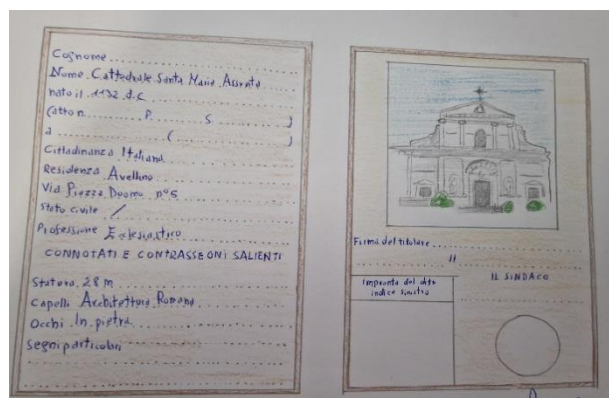 Cognome
Nome Cattedrale Santa Maria Assunta
nato il 1132 d.C
(atto n. P. S. )
a ( )
Cittadinanza Italiana
Residenza Avellino
Via Piazza Duomo n°5
Stato civile /
Professione Ecclesiastico
CONNOTATI E CONTRASSEGNI SALIENTI
Statura 28 m
Capelli Architettura Romana
Occhi In pietra
Segni particolari
Firma del titolare
lì
Impronta del dito
indice sinistro
IL SINDACO